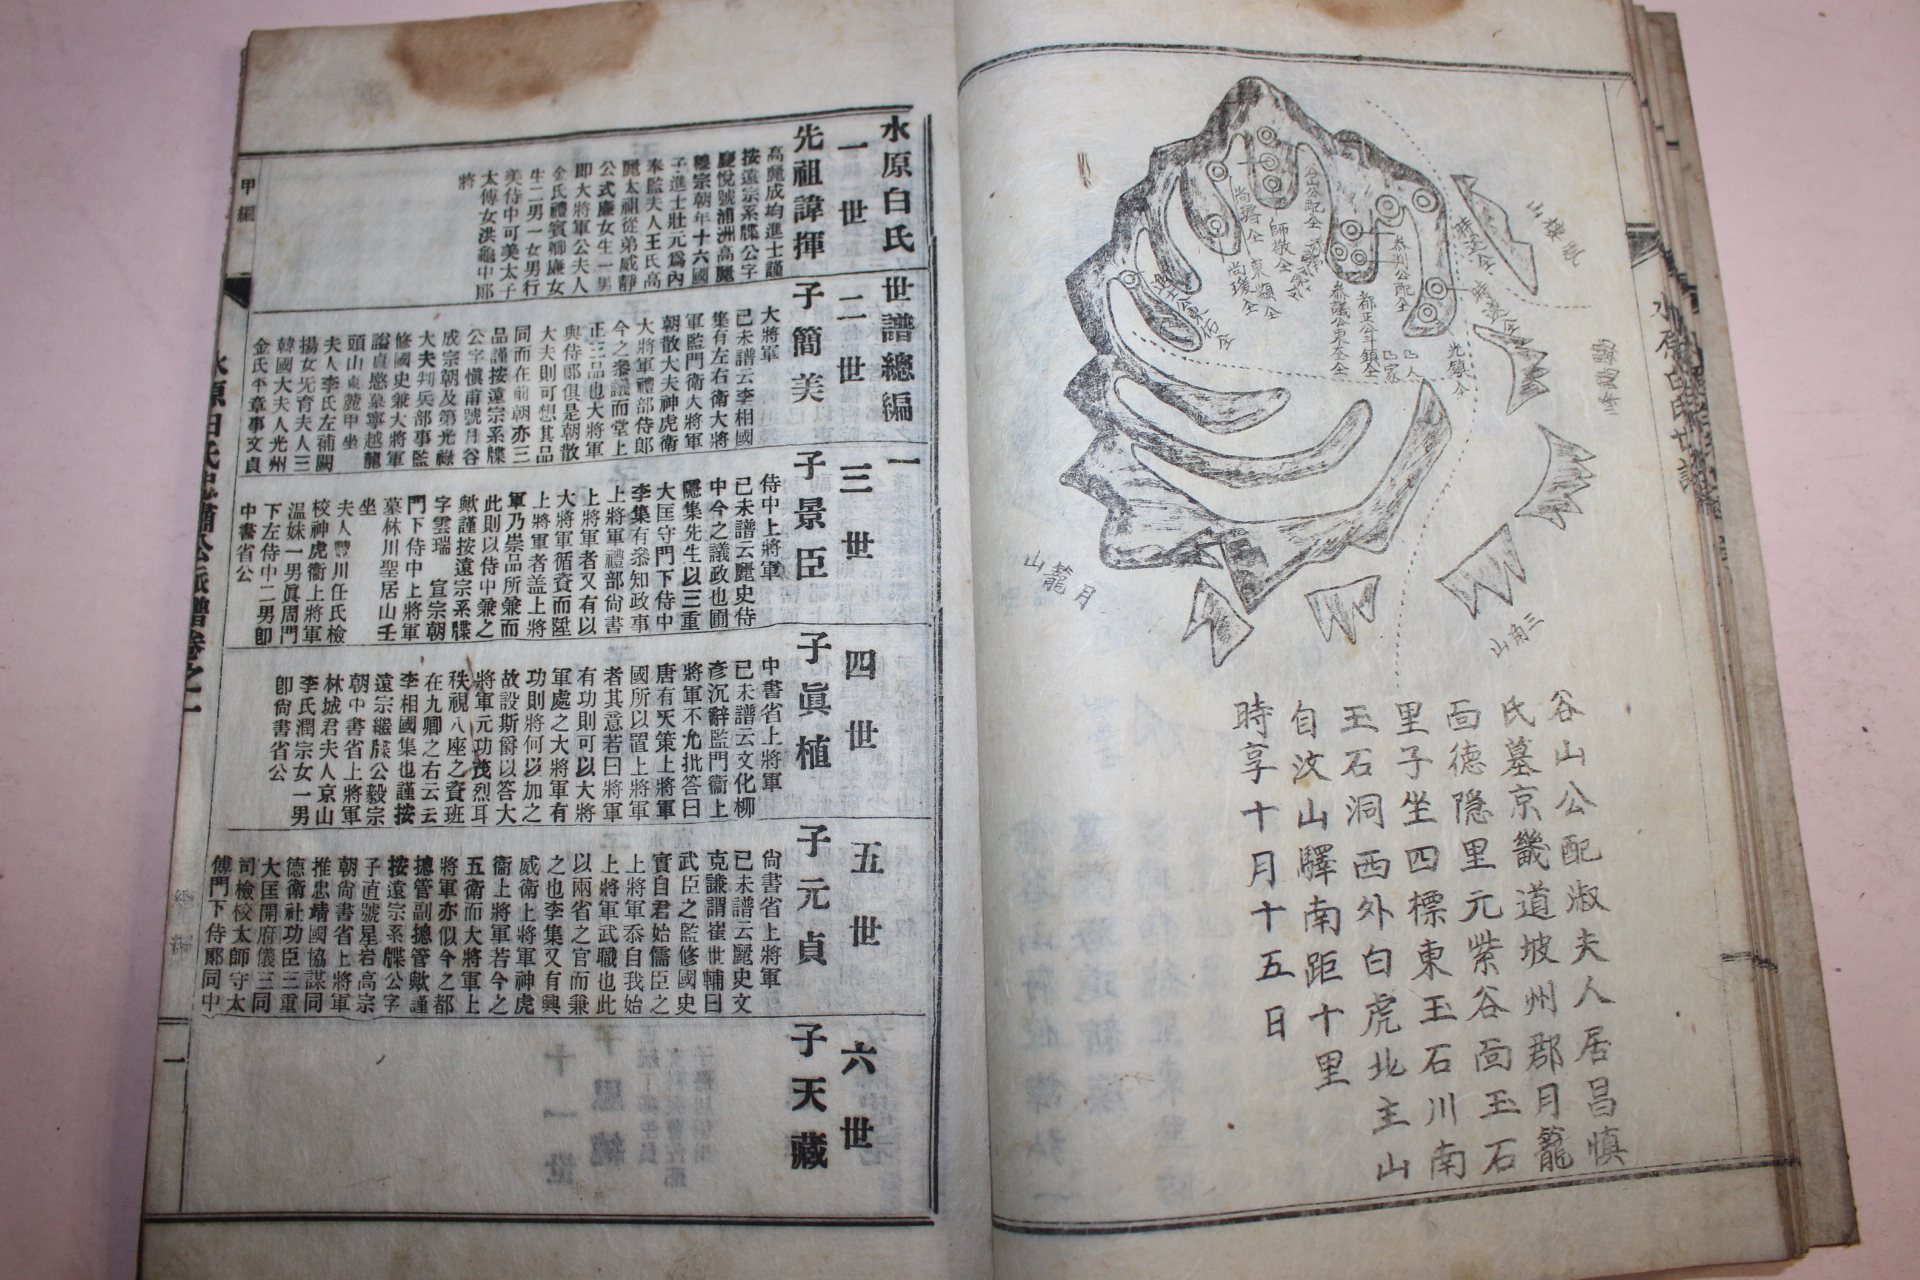 谷山公配淑夫人居昌慎
氏墓京畿道坡州郡月籠
面德隱里元紫谷面玉石
里子坐四標東玉石川南
玉石洞西外白虎北主山
自汶山驛南距十里
時享十月十五日
山籠月
山角三
師敬仝
東頬仝
尚瑗仝
光鎮仝
水原白氏世譜
水原白氏世譜總編之一
一世
先祖諱揮
高麗成均進士謹
按遠宗系牒公字
慶悅號浦洲高麗
睦宗朝年十六國
子進士壯元爲內
奉監夫人王氏高
麗太祖從弟威靜
公式廉女生一男
即大將軍公夫人
金氏禮賓卿廉女
生二男一女男行
美侍中可美太子
太傅女洪龜中郎
將
二世
子簡美
大將軍
已未譜云李相國
集有左右衛大將
軍監門衛大將軍
朝散大夫神虎衛
大將軍禮部侍郎
今之叅議而堂上
正三品也大將軍
與侍郎俱是朝散
大夫則可想其品
同而在前朝亦三
品謹按遠宗系牒
公字愼甫號月谷
成宗朝及第光祿
大夫判兵部事監
修國史兼大將軍
諡貞愍墓寧越龍
頭山東麓甲坐
夫人李氏左補闕
揚女旡育夫人三
韓國大夫人光州
金氏平章事文貞
三世
子景臣
侍中上將軍
已未譜云麗史侍
中今之議政也圃
隱集先生以三重
大匡守門下侍中
李集有叅知政事
上將軍禮部尚書
上將軍者又有以
大將軍循資而陞
上將軍者盖上將
軍乃崇品所兼而
此則以侍中兼之
歟謹按遠宗系牒
字雲瑞 宣宗朝
門下侍中上將軍
墓林川聖居山壬
坐
夫人豐川任氏檢
校神虎衛上將軍
溫妹一男眞周門
下左侍中二男卽
中書省公
四世
子眞植
中書省上將軍
已未譜云文化柳
彥沉辭監門衛上
將軍不允批答曰
唐有天策上將軍
國所以置上將軍
者其意若曰將軍
有功則可以大將
軍處之大將軍有
功則將何以加之
故設斯爵以答大
將軍元功茂烈耳
秩視八座之資班
在九卿之右云云
李相國集也謹按
遠宗繼牒公毅宗
朝中書省上將軍
林城君夫人京山
李氏潤宗女一男
卽尙書省公
五世
子元貞
尙書省上將軍
已未譜云麗史文
克謙謂崔世輔曰
武臣之監修國史
實自君始儒臣之
上將軍忝自我始
上將軍武職也此
以兩省之官而兼
之也李集又有興
威衛上將軍神虎
衞上將軍若今之
五衛而大將軍上
將軍亦似今之都
摠管副摠管歟謹
按遠宗系牒公字
子直號星岩高宗
朝尙書省上將軍
推忠靖國協謀同
德衛社功臣三重
大匡開府儀三同
司檢校太師守太
傅門下侍郎同中
六世
子天藏
甲編
卷之一
一